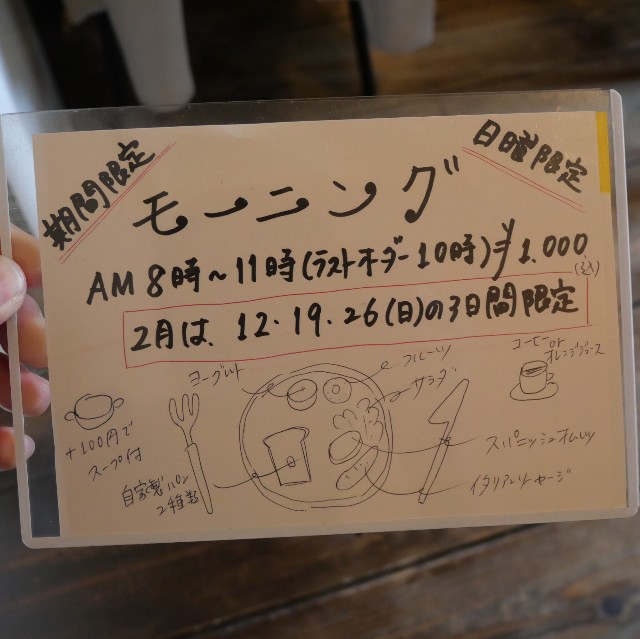 期間限定
日曜限定
モーニング
AM 8時～11時(ラストオーダー10時)¥1.000
(込)
2月は、12・19・26(日)の3日間限定
ヨーグルト
フルーツ
サラダ
コーヒーor
オレンジジュース
+100円で
スープ付
自家製パン
2種類
スパニッシュオムレツ
イタリアンソーセージ